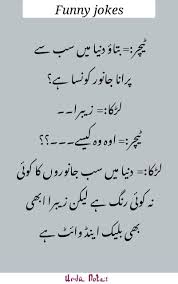 Funny jokes
ٹیچر:= بتاؤ دنیا میں سب سے
پرانا جانور کونسا ہے؟
لڑکا:= زیبرا۔۔
ٹیچر:= اوہ وہ کیسے۔۔۔؟؟
لڑکا:= دنیا میں سب جانوروں کا کوئی
نہ کوئی رنگ ہے لیکن زیبرا ابھی
بھی بلیک اینڈ وائٹ ہے
Urdu Notes